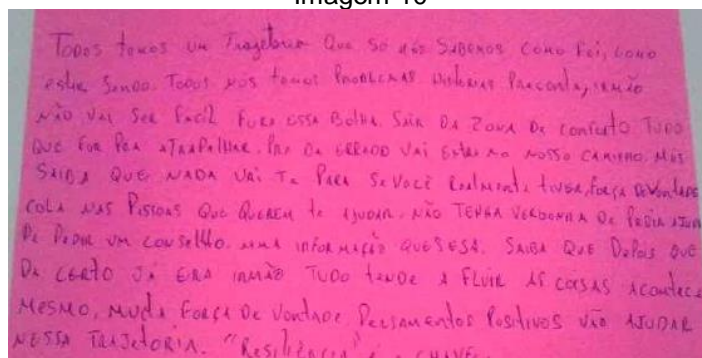 Imagem 10
Todos temos um Trajetoria Que só nós SABEMOS COMO Foi, como
esta Sendo. Todos nós temos PROBLEMAS Historias Pra conta, irmão
NÃO VAI SER FACIL FURA ESSA BOLHA. SAIR DA ZONA DE CONFORTO TUDO
QUE FOR PRA ATRAPALHAR. PRA DA ERRADO VAI ESTAR NO NOSSO CAMINHO. MAS
SAIBA QUE NADA VAI TE PARA SE VOCÊ Realmente tiver, FORÇA DE VONTADE
COLA NAS PESSOAS QUE QUEREM te AJUDAR. NÃO TENHA VERGONHA DE PEDIR AJUDA
DE PEDIR UM CONSELHO. UMA INFORMAÇÃO QUE SEJA. SAIBA QUE DEPOIS QUE
DA CERTO JÁ ERA IRMÃO TUDO tende A FLUIR AS COISAS ACONTECE
MESMO, MUITA FORÇA DE VONTADE PENSAMENTOS POSITIVOS VÃO AJUDAR
NESSA TRAJETORIA. "Resiliência" é a CHAVE.